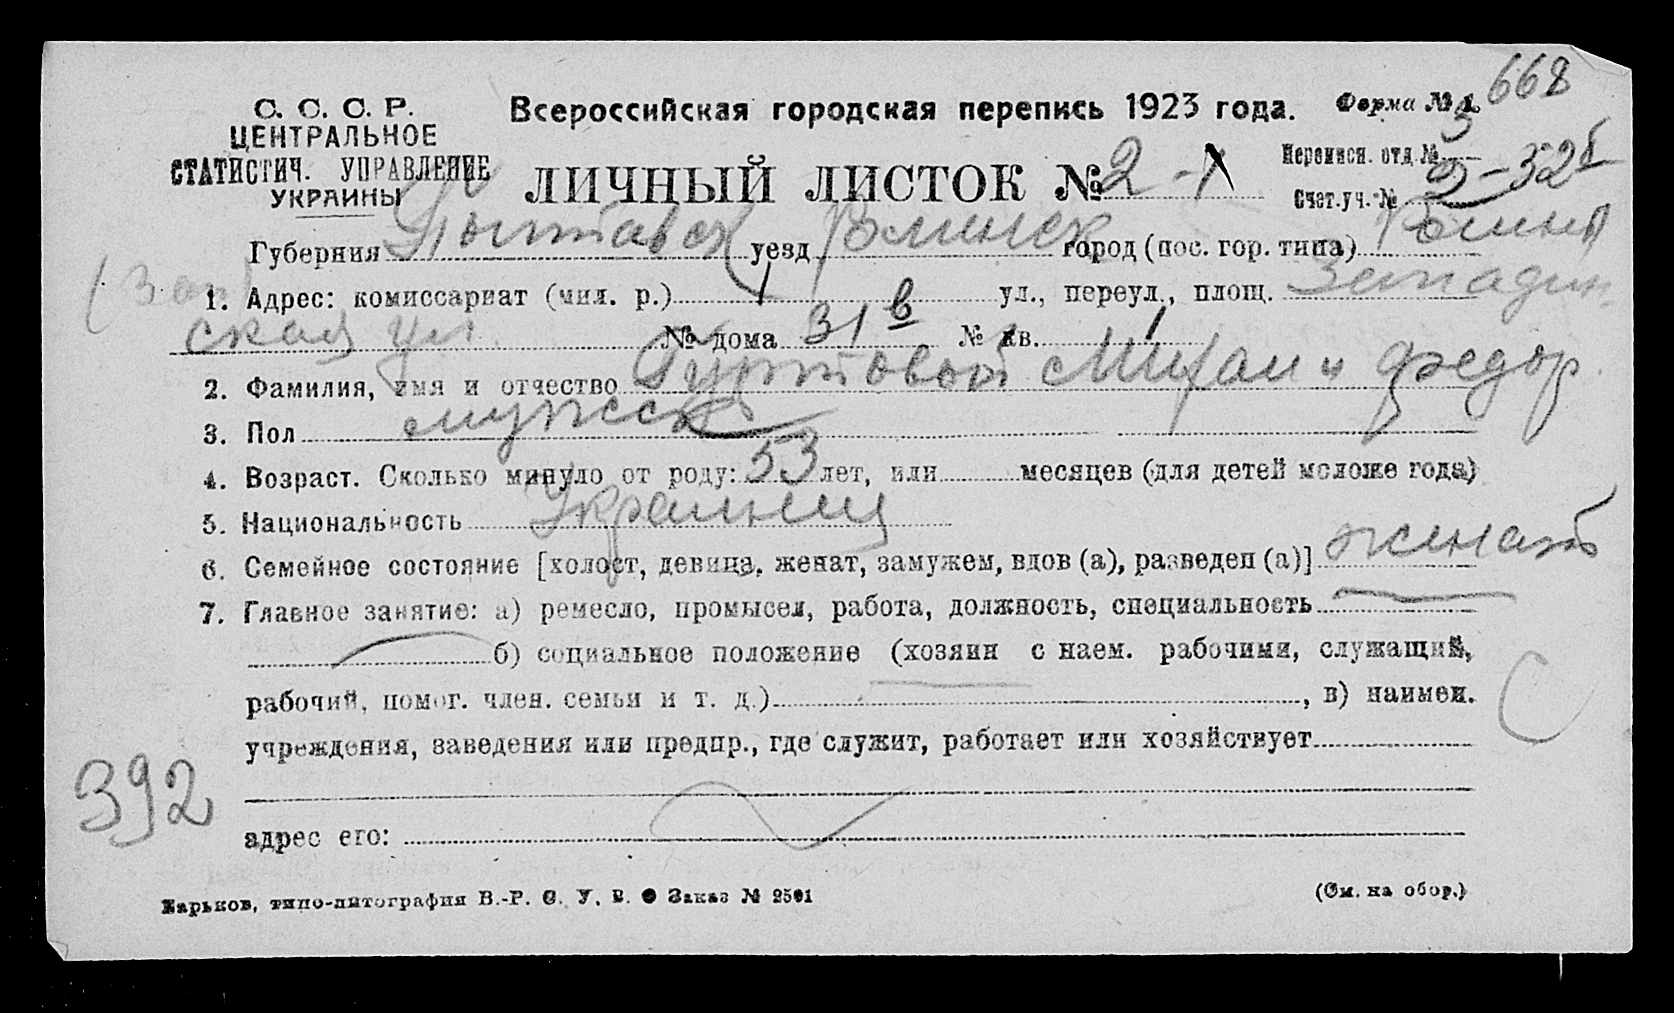 668
С. С. С. Р. Всероссийская городская перепись 1923 года. Форма № 1.
ЦЕНТРАЛЬНОЕ
СТАТИСТИЧ. УПРАВЛЕНИЕ
УКРАИНЫ
ЛИЧНЫЙ ЛИСТОК № 2 - 1
Переписн. отд. № 3
Счет. уч. № 2-52б
Губерния Полтавск уезд Роменск город (пос. гор. типа) Ромны
1. Адрес: комиссариат (мил. р.) 1 ул., переул., площ. Западин
ская ул. № дома 31 в № кв. 1
2. Фамилия, имя и отчество Гуртовой Михаил Федор.
3. Пол мужск
4. Возраст. Сколько минуло от роду: 53 лет, или месяцев (для детей моложе года)
5. Национальность Украинец
6. Семейное состояние [холост, девица, женат, замужем, вдов (а), разведен (а)] женат
7. Главное занятие: а) ремесло, промысел, работа, должность, специальность
б) социальное положение (хозяин с наем. рабочими, служащий,
рабочий, помог. член. семьи и т. д.) , в) наимен.
С
учреждения, заведения или предпр., где служит, работает или хозяйствует
392
адрес его:
Харьков, типо-литография В.-Р. С. У. В. Заказ № 2501 (См. на обор.)